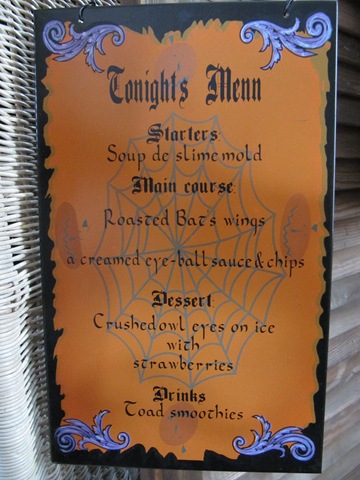 Tonight's Menu
Starters
Soup de slime mold
Main course
Roasted Bat's wings
a creamed eye-ball sauce & chips
Dessert
Crushed owl eyes on ice
with
strawberries
Drinks
Toad smoothies